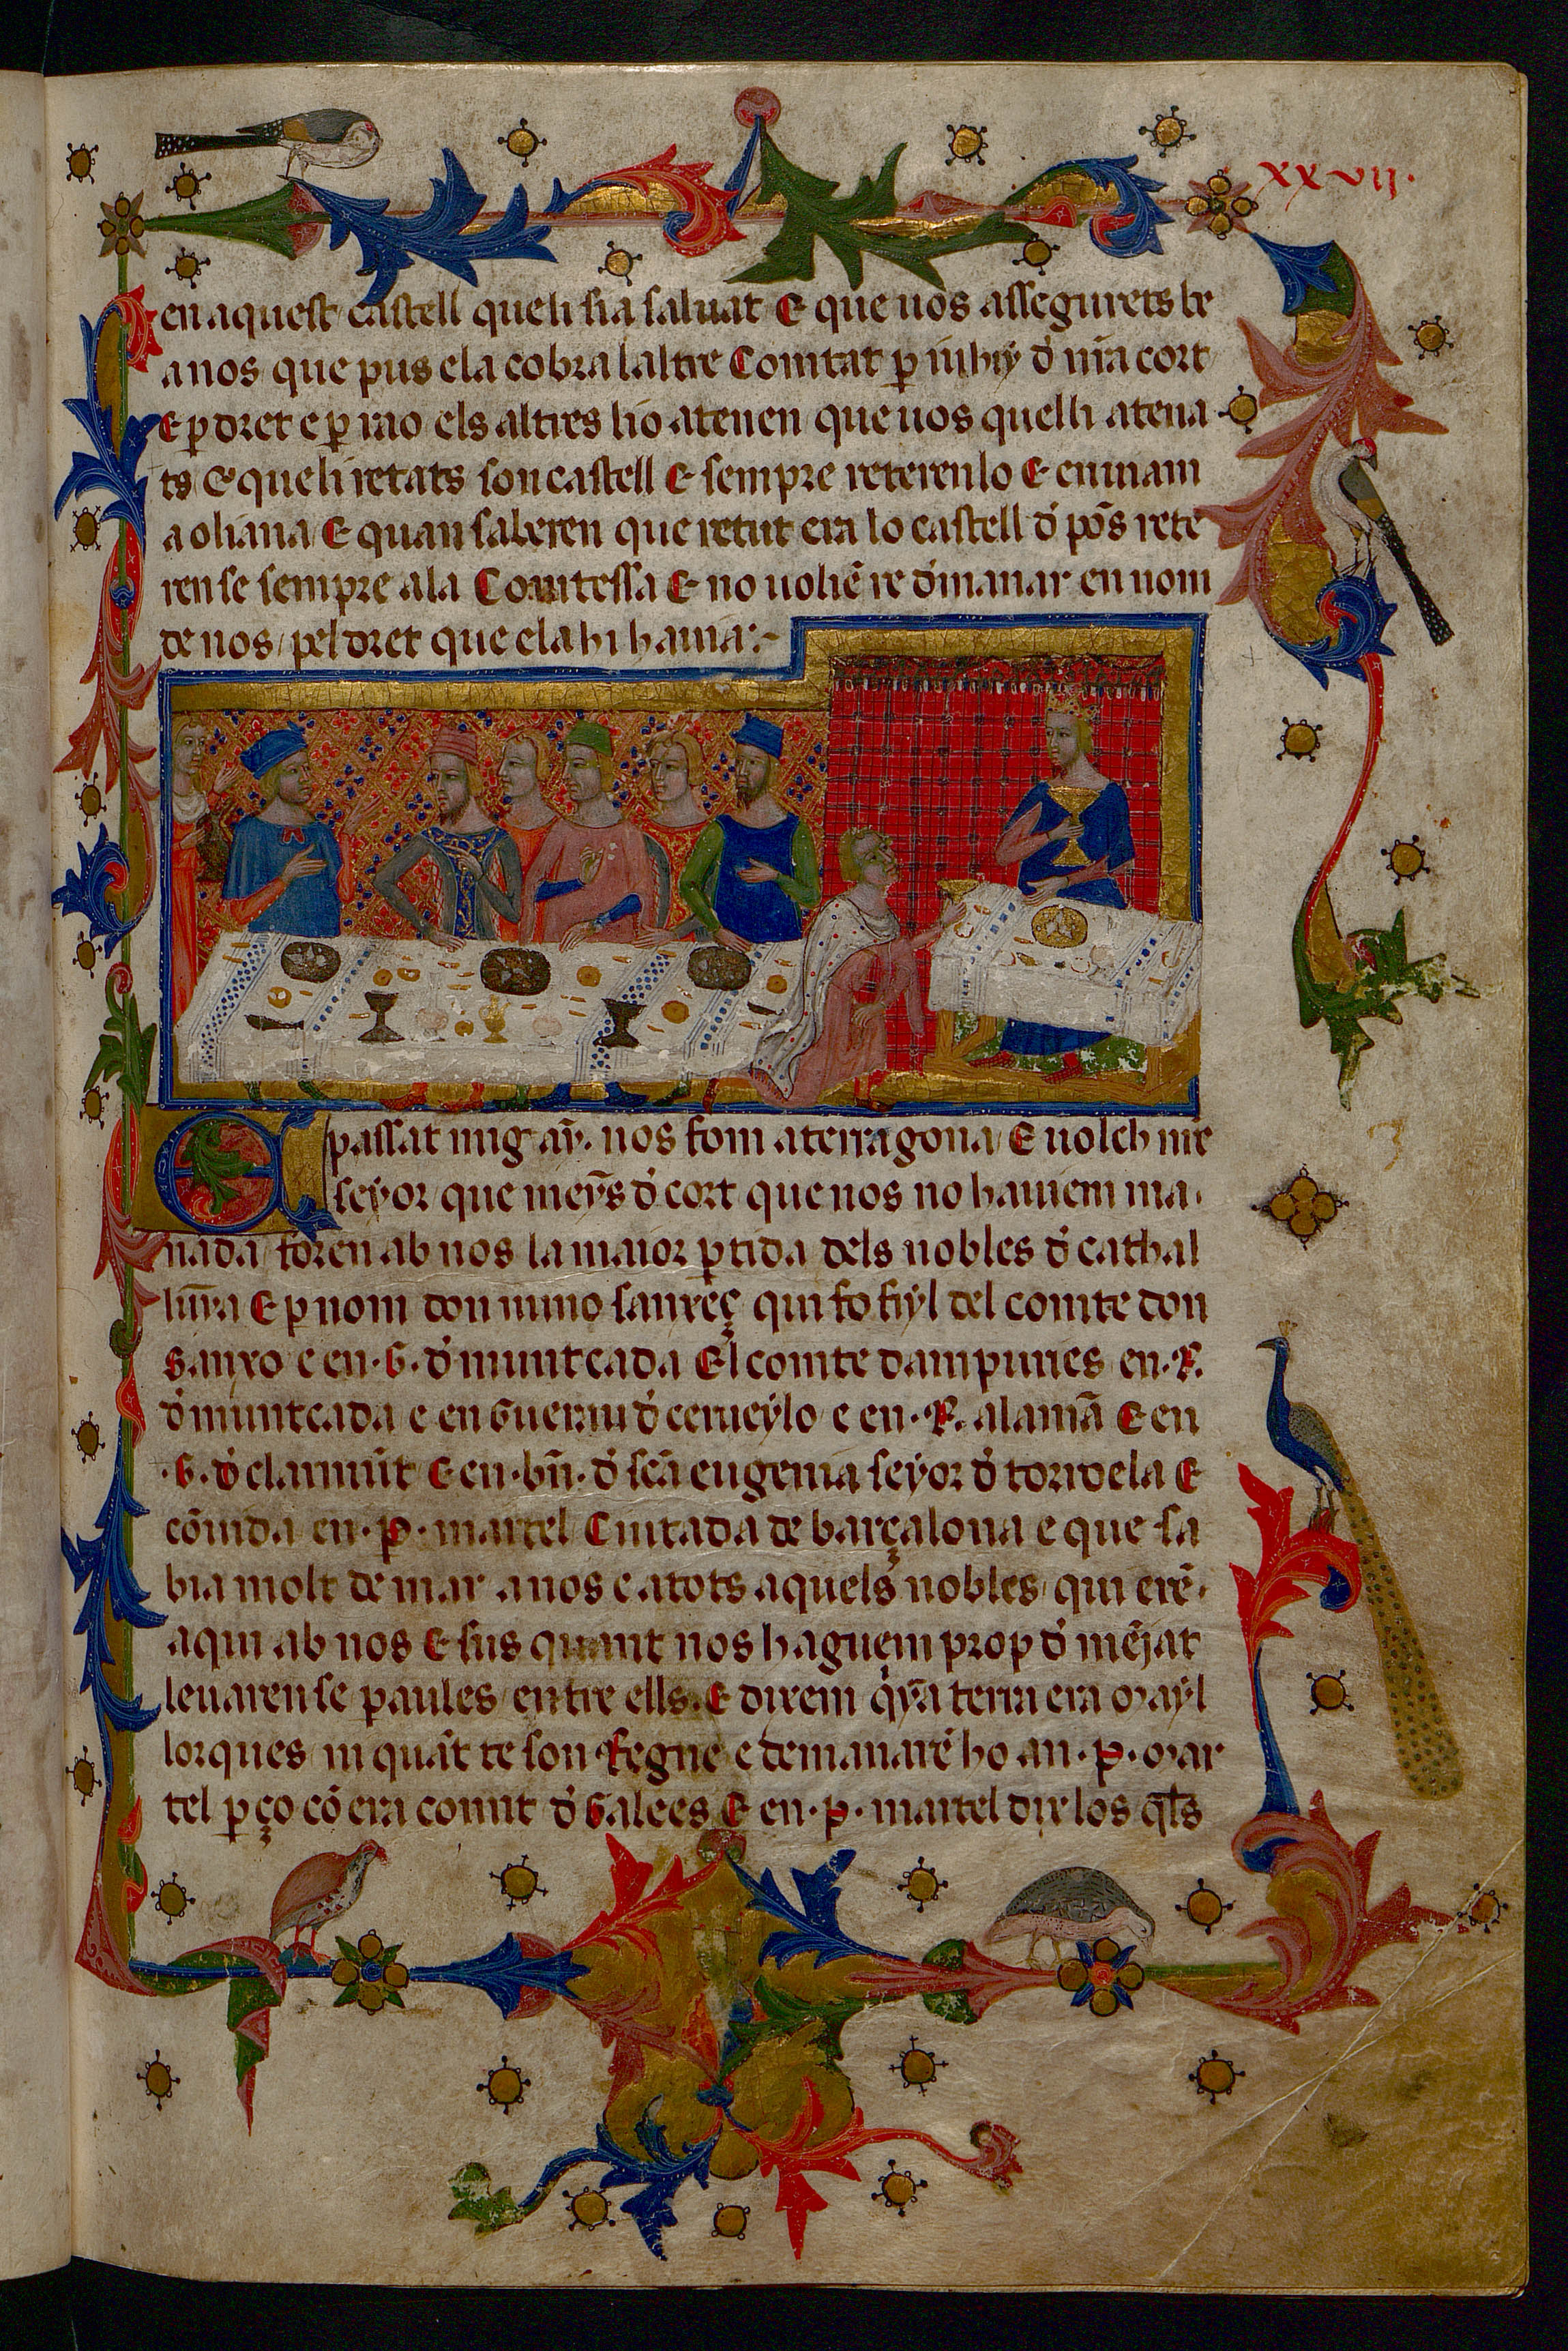 xxvij.
en aquest castell que li sia saluat E que uos assegurets be
a nos que pus ela cobra laltre Comtat p̲ iuhiy d̕ nr̄a cort
E p̲ dret e p̲ rao els altres lio atenen que uos quelli atena
ts E que li retats son castell E sempre reterenlo E eninam
a oliana E quan saberen que retut era lo castell d̕ pōs rete
ren se sempre ala Comtessa E no uoliē re d̕manar en nom
de nos pel dret que ela hi hauia:~
E passat mig ay̅. nos fom a terragona E uolch nr̄e
seyor que meỹs d̕ cort que nos no hauiem ma
nada foren ab nos la maior p̲tida dels nobles d̕ cathal
lūya E p̲ nom don nuno sanxeç qui fo fiyl del comte don
Sanxo e en .G. d̕ muntcada El comte dampuries en .R.
d̕ muntcada e en Guerau d̕ cerueylo e en .R. alamā E en
.G. d̕ claramūt E en .bn̄. d̕ scā eugenia seyor d̕ torroela E
cōuida en .P. martel Ciutada de barçalona e que sa
bia molt de mar a nos e a tots aquels nobles qui erē
aqui ab nos E sus quant nos haguem prop d̕ mējat
leuaren se paules entre ells. E dixem q̕yā terra era mayl
lorques ni quāt te son Regne e demanarē ho an .P. Mar
tel p̲ço cō era comit d̕ Galees E en .P. martel dix los q̄ls